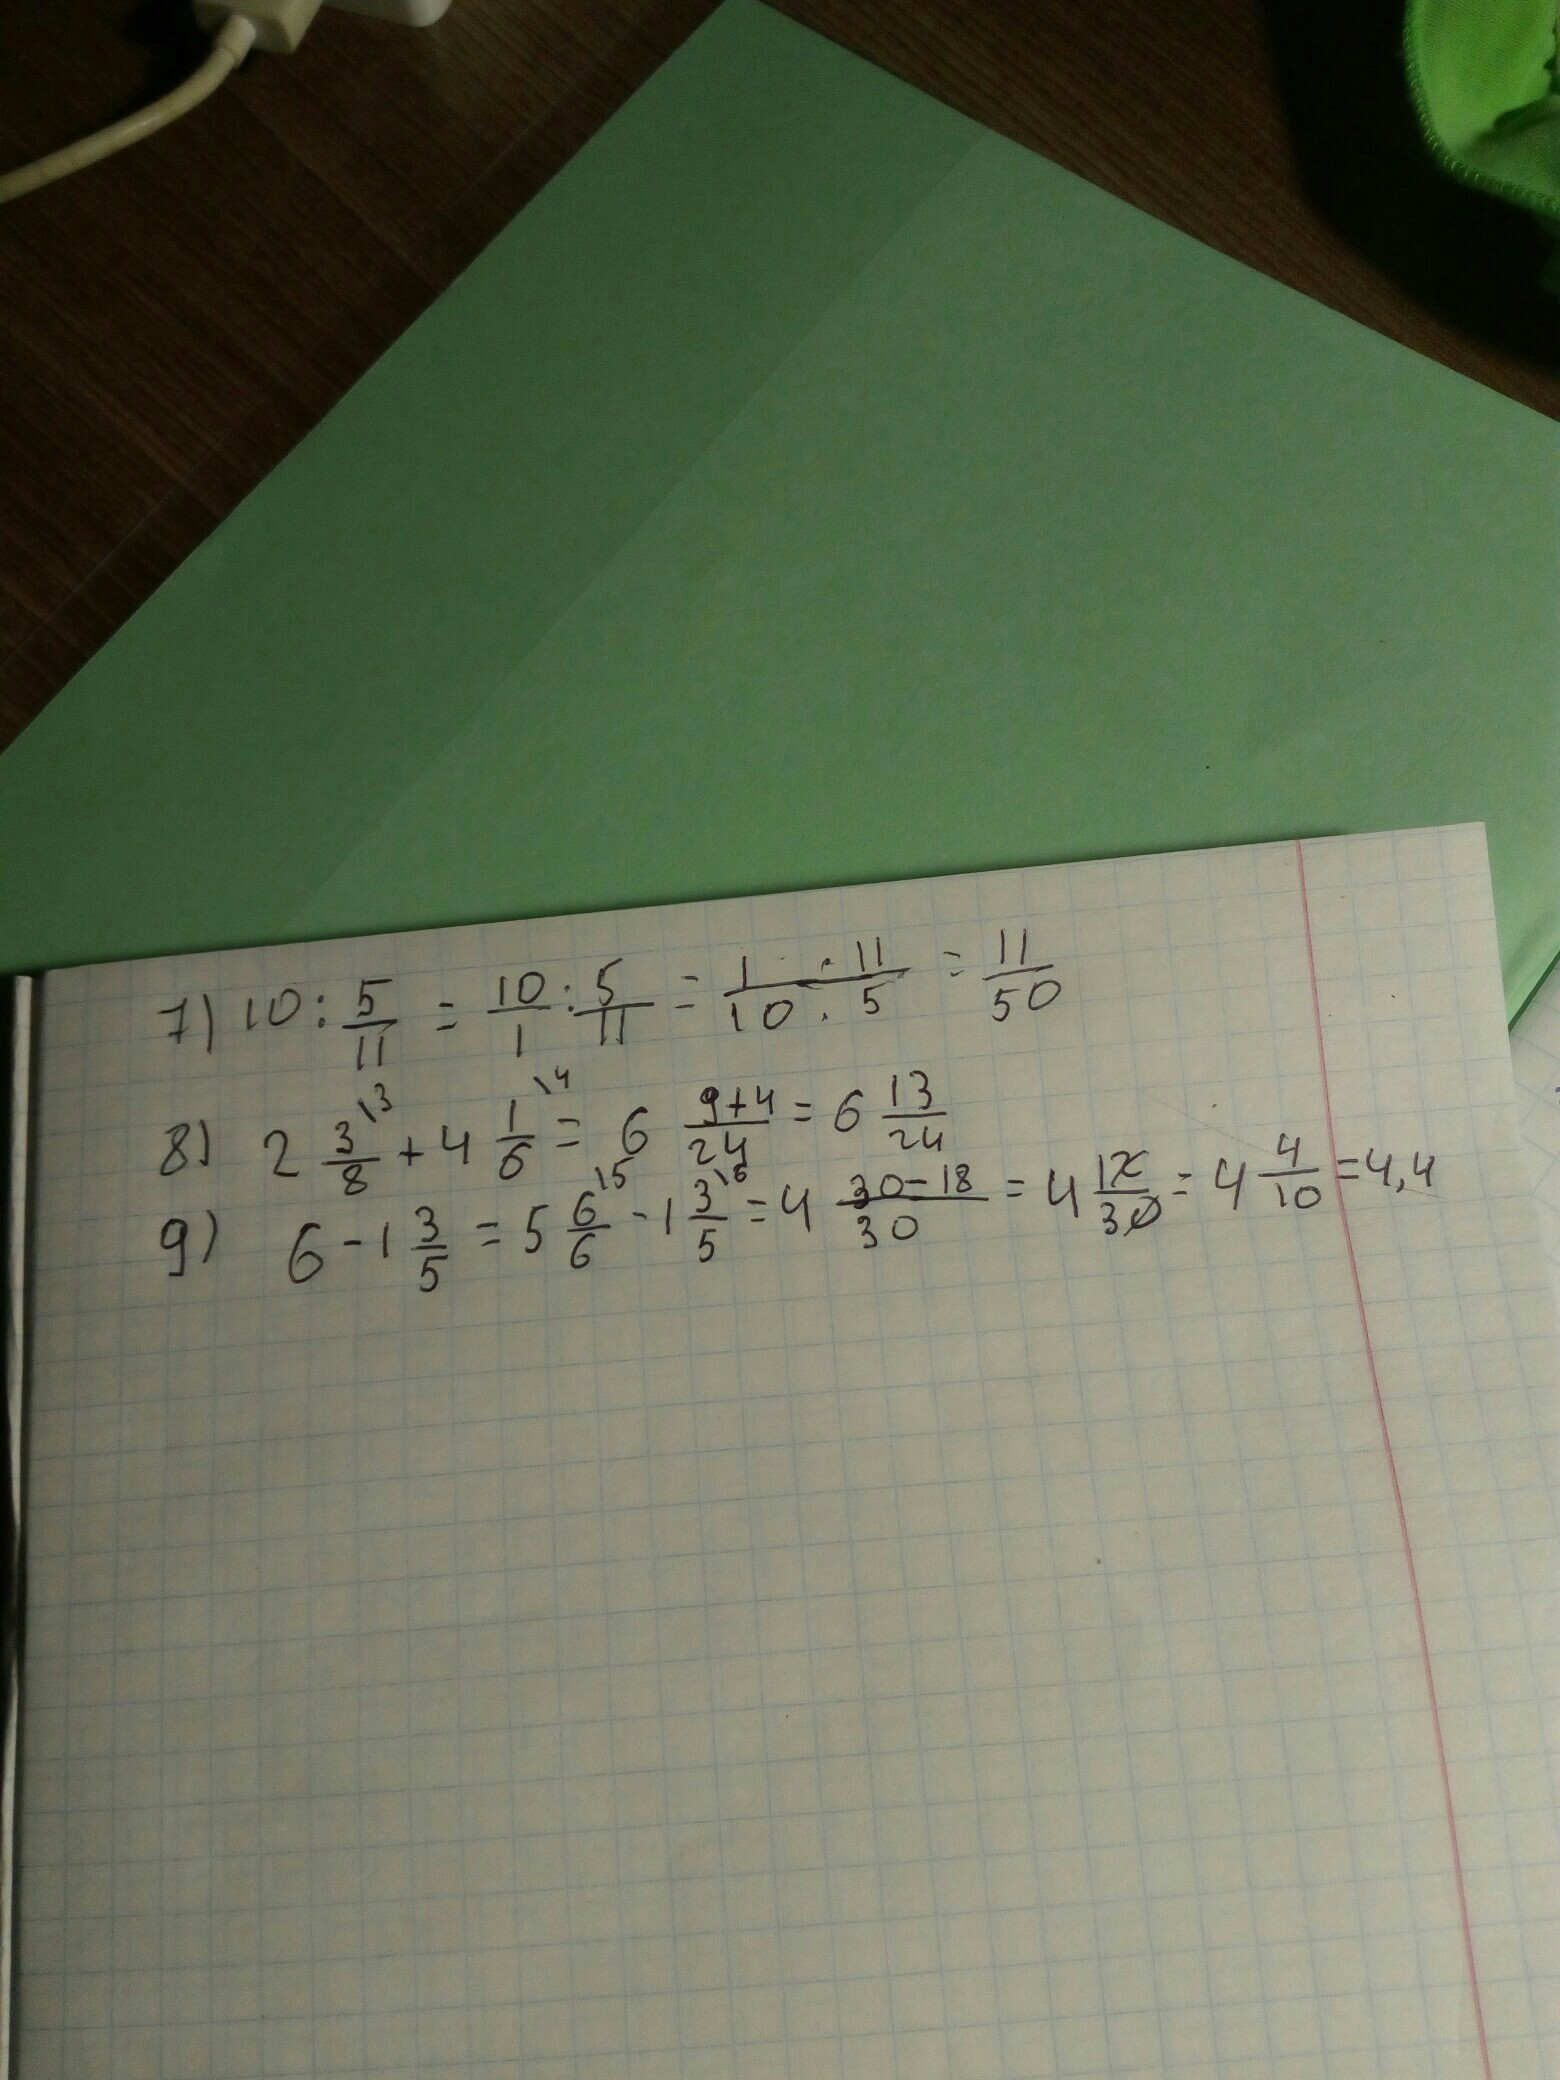 7) 10 : 5/11 = 10/1 : 5/11 = 1 · 11/10 · 5 = 11/50
8) 2 3/8 \3 + 4 1/6 \4 = 6 9+4/24 = 6 13/24
9) 6 - 1 3/5 = 5 6/6 \5 - 1 3/5 \6 = 4 30-18/30 = 4 12/30 = 4 4/10 = 4,4